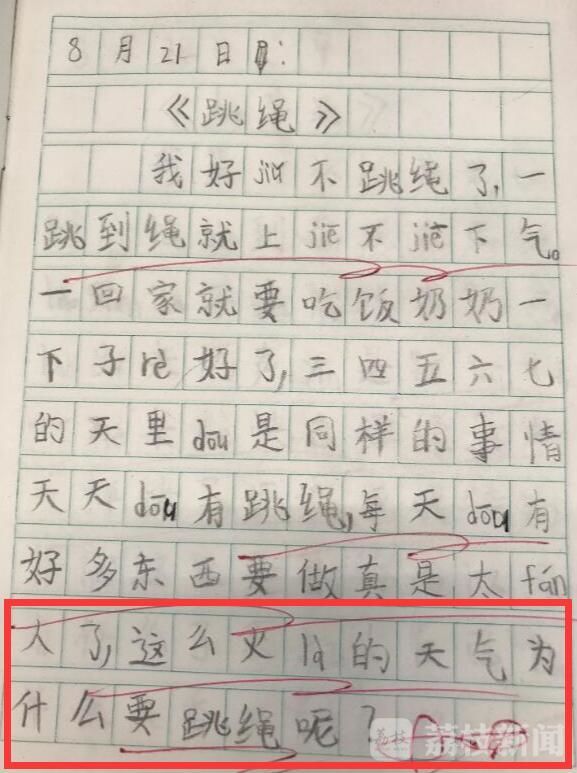 8月21日:
《跳绳》
我好jiǔ不跳绳了,一
跳到绳就上jiē不jiē下气。
一回家就要吃饭奶奶一
下子rè好了,三四五六七
的天里dōu是同样的事情
天天dōu有跳绳,每天dōu有
好多东西要做真是太fán
人了,这么火là的天气为
什么要跳绳呢?
荔枝 荔枝新闻